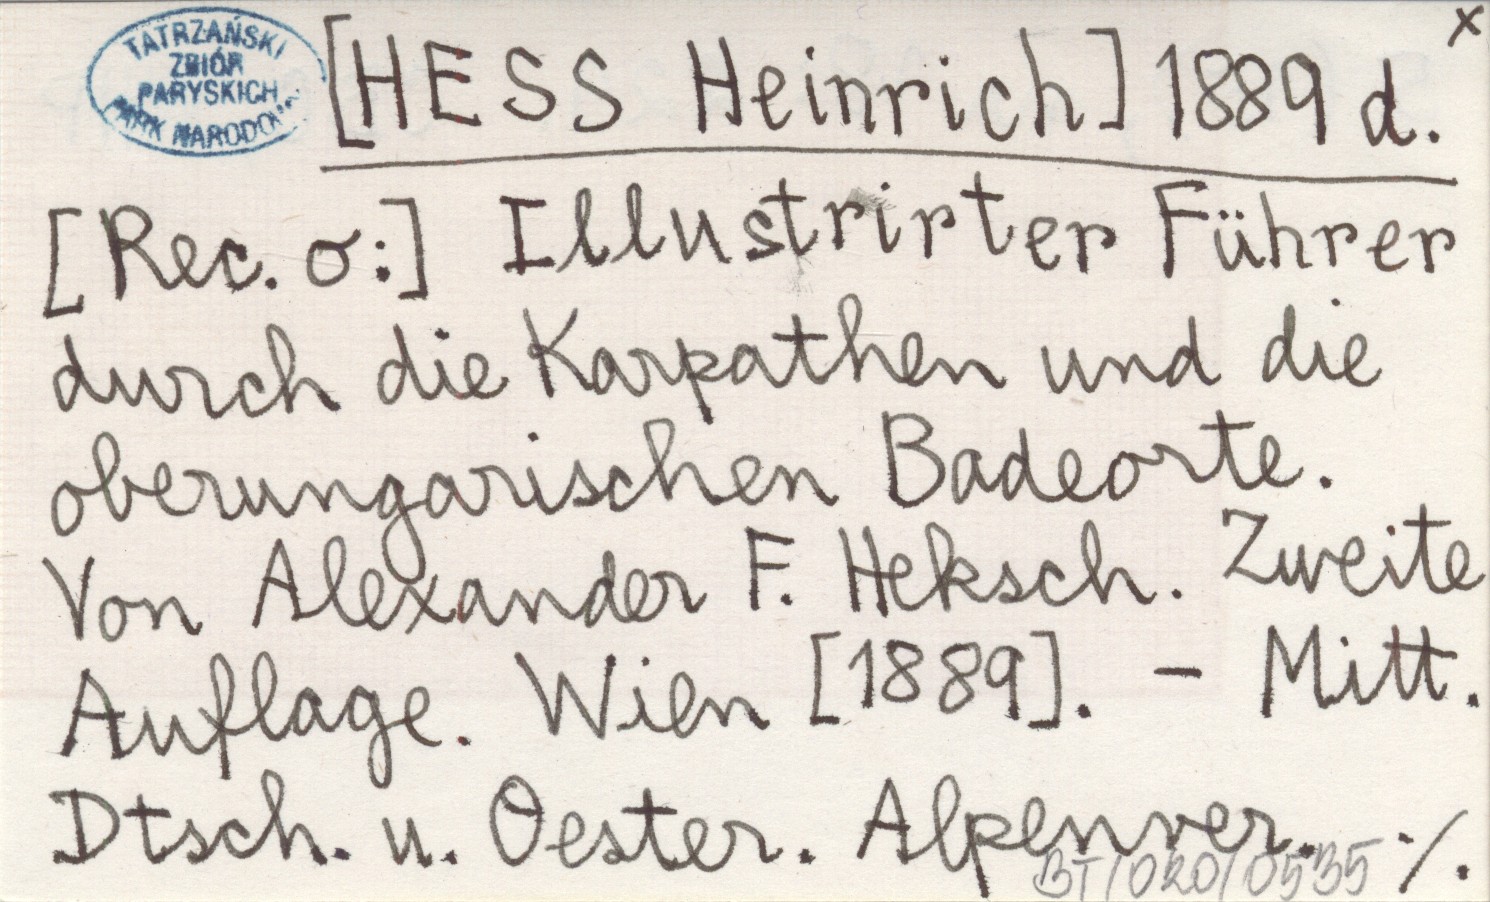 TATRZAŃSKI
ZBIÓR
PARYSKICH
PARK NARODOWY
[HESS Heinrich] 1889 d.
x
[Rec. o:] Illustrirter Führer
durch die Karpathen und die
oberungarischen Badeorte.
Von Alexander F. Heksch. Zweite
Auflage. Wien [1889]. – Mitt.
Dtsch. u. Oester. Alpenver. ·/.
BT/020/0535